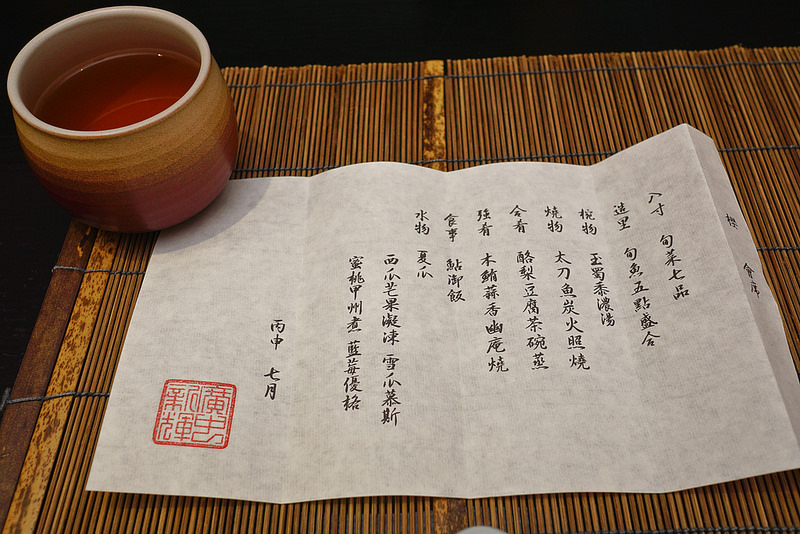 櫻 會席
八寸 旬菜七品
造里 旬魚五點盛合
椀物 玉蜀黍濃湯
燒物 太刀魚炭火照燒
合肴 酪梨豆腐茶碗蒸
強肴 木鮪蒜香幽庵燒
食事 鮎御飯
水物 夏瓜
西瓜芒果凝凍 雪瓜慕斯
蜜桃甲州煮 藍莓優格
丙申 七月